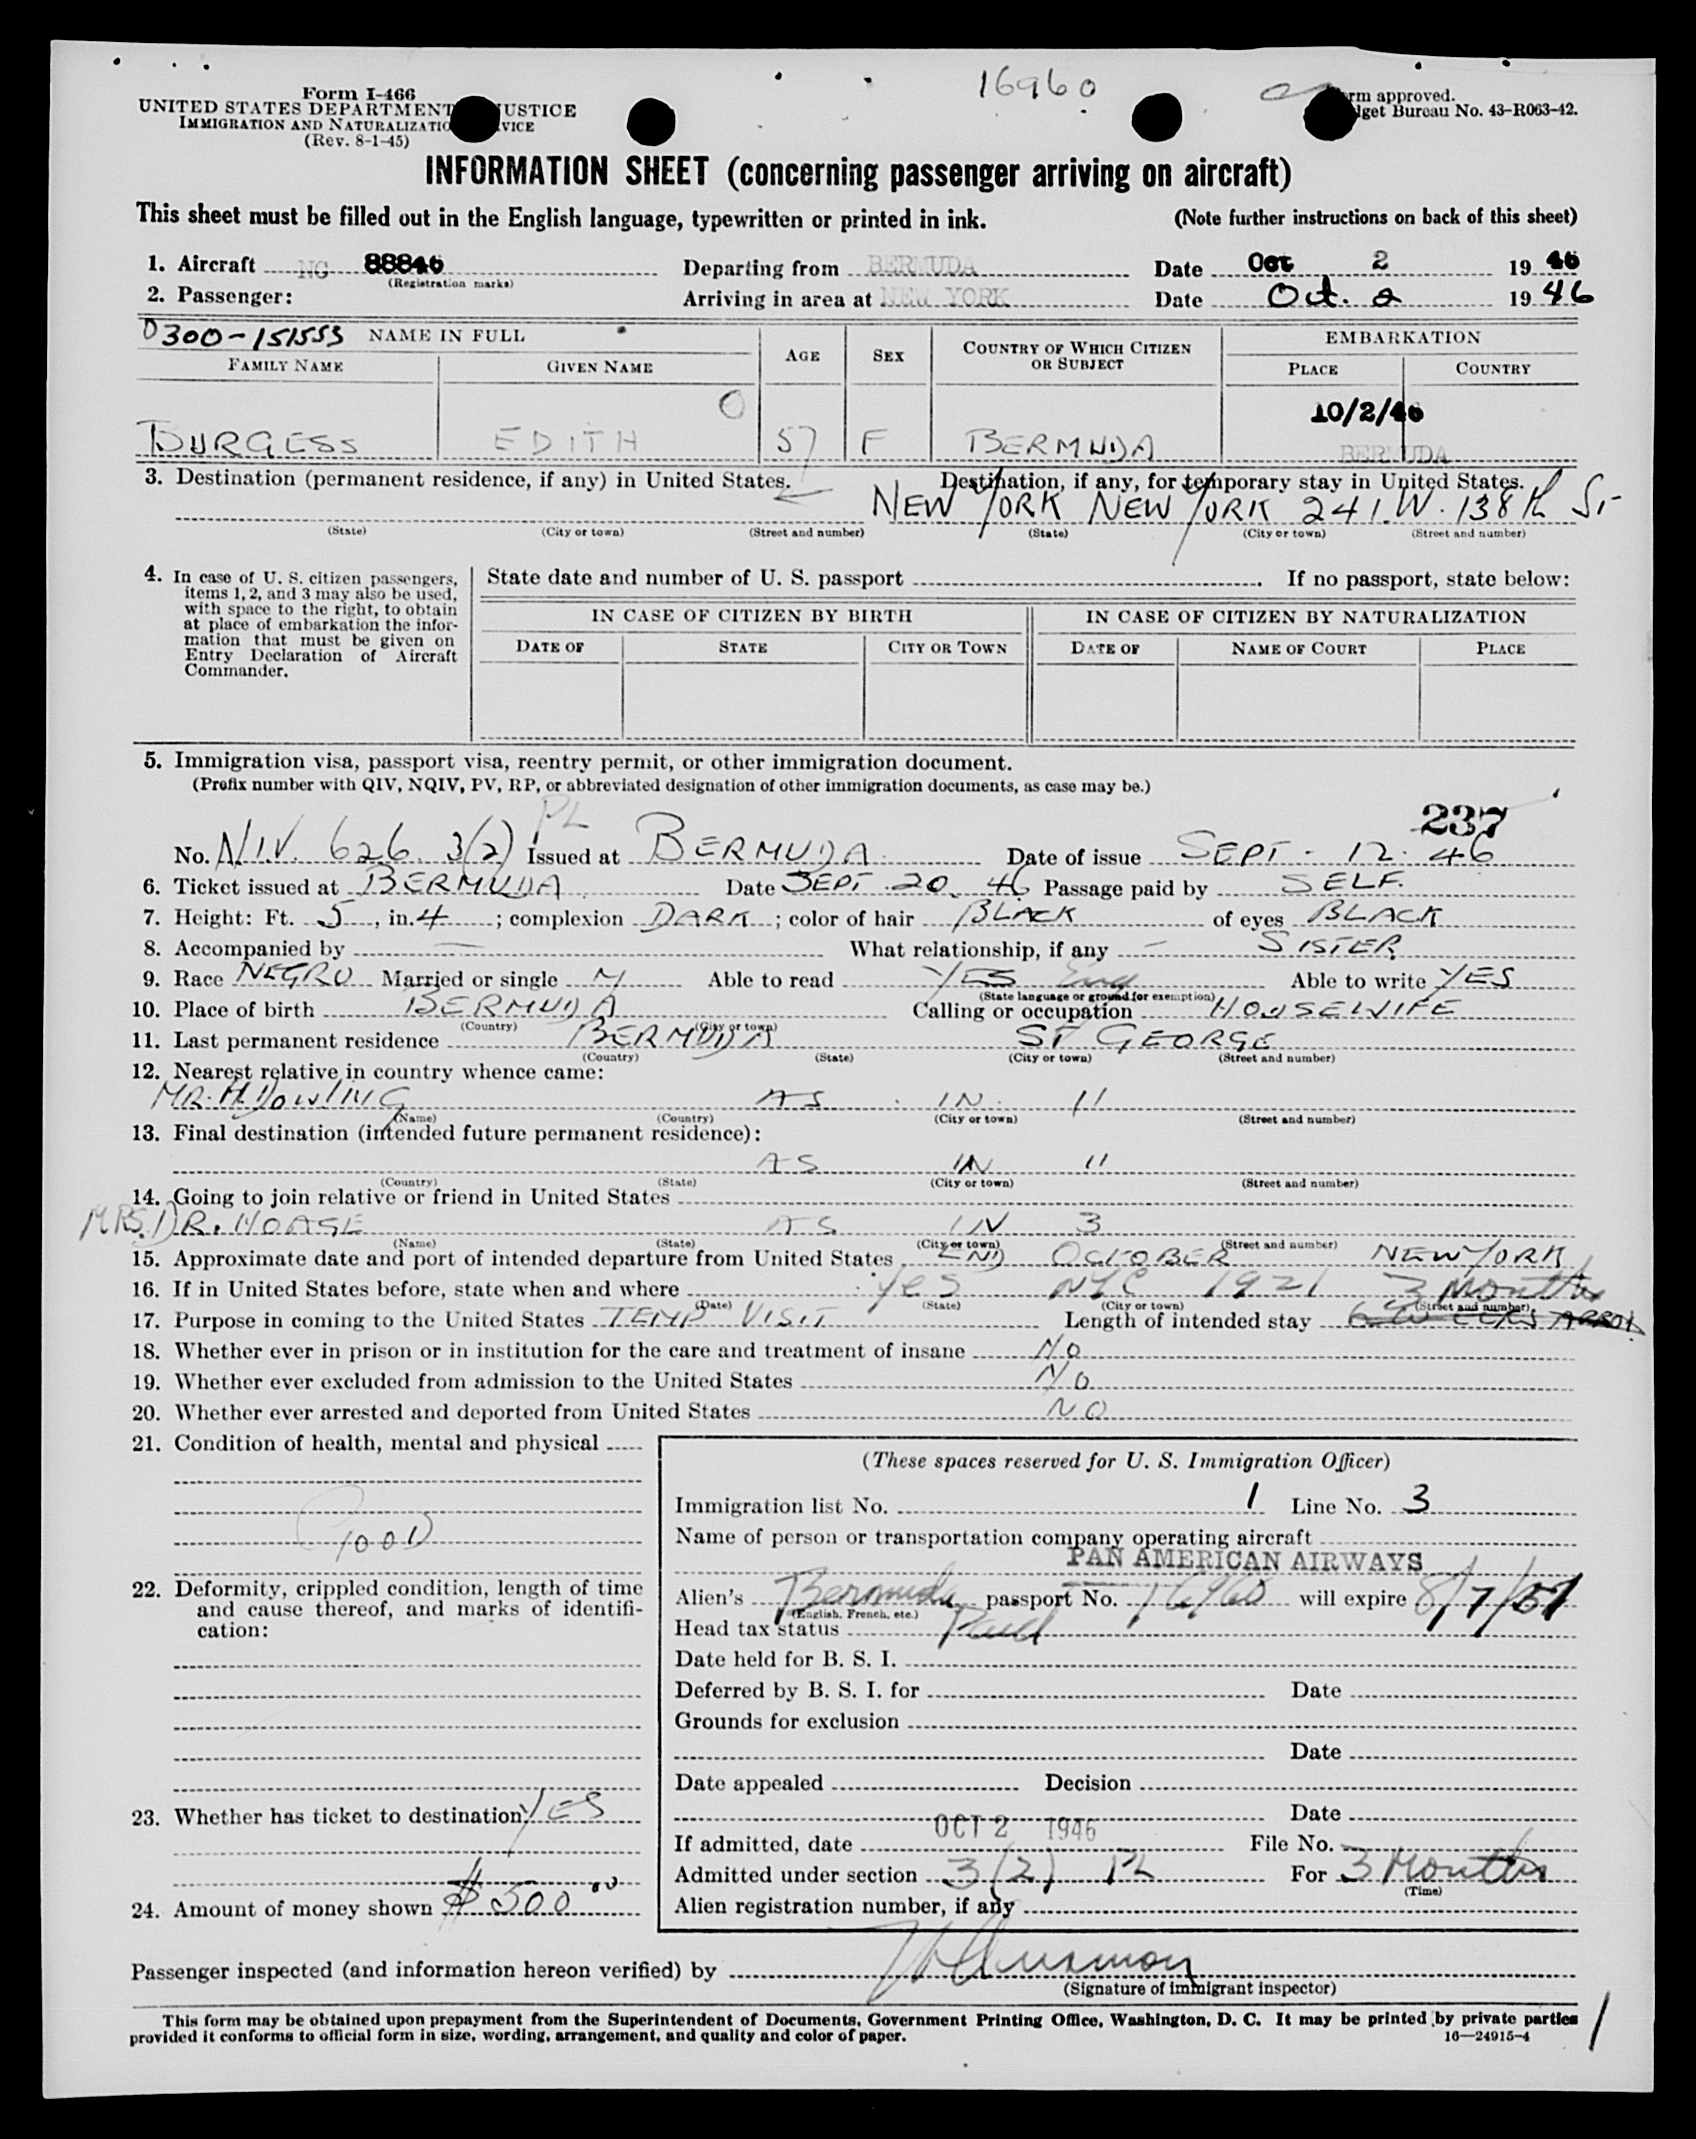 16960
Form I-466
UNITED STATES DEPARTMENT USTICE
IMMIGRATION AND NATURALIZATIO VICE
(Rev. 8-1-45)
rm approved.
get Bureau No. 43-R063-42.
INFORMATION SHEET (concerning passenger arriving on aircraft)
This sheet must be filled out in the English language, typewritten or printed in ink. (Note further instructions on back of this sheet)
1. Aircraft NC 88846 Departing from BERMUDA Date Oct 2 19 46
(Registration marks)
2. Passenger: Arriving in area at NEW YORK Date Oct. 2 19 46
0300-151553 NAME IN FULL AGE SEX COUNTRY OF WHICH CITIZEN OR SUBJECT EMBARKATION
FAMILY NAME GIVEN NAME PLACE COUNTRY
10/2/46
BURGESS EDITH 57 F BERMUDA BERMUDA
3. Destination (permanent residence, if any) in United States. Destination, if any, for temporary stay in United States.
NEW YORK NEW YORK 241 W. 138th ST
(State) (City or town) (Street and number) (State) (City or town) (Street and number)
4. In case of U. S. citizen passengers, items 1, 2, and 3 may also be used, with space to the right, to obtain at place of embarkation the information that must be given on Entry Declaration of Aircraft Commander.
State date and number of U. S. passport . If no passport, state below:
IN CASE OF CITIZEN BY BIRTH IN CASE OF CITIZEN BY NATURALIZATION
DATE OF STATE CITY OR TOWN DATE OF NAME OF COURT PLACE
5. Immigration visa, passport visa, reentry permit, or other immigration document.
(Prefix number with QIV, NQIV, PV, RP, or abbreviated designation of other immigration documents, as case may be.)
PL 237
No. N.I.V. 626 3(2) Issued at BERMUDA Date of issue SEPT - 12. 46
6. Ticket issued at BERMUDA Date SEPT. 20. 46 Passage paid by SELF.
7. Height: Ft. 5, in. 4; complexion DARK; color of hair BLACK of eyes BLACK
8. Accompanied by — What relationship, if any — SISTER
9. Race NEGRO Married or single M Able to read YES Eng Able to write YES
(State language or ground for exemption)
10. Place of birth BERMUDA Calling or occupation HOUSEWIFE
(Country) (City or town)
11. Last permanent residence BERMUDA ST GEORGE
(Country) (State) (City or town) (Street and number)
12. Nearest relative in country whence came:
MR. H. DOWLING AS IN 11
(Name) (Country) (City or town) (Street and number)
13. Final destination (intended future permanent residence):
AS IN 11
(Country) (State) (City or town) (Street and number)
14. Going to join relative or friend in United States
MRS. DR. HOAGE AS IN 3
(Name) (State) (City or town) (Street and number)
15. Approximate date and port of intended departure from United States END OCTOBER NEW YORK
16. If in United States before, state when and where Yes NYC 1921 3 Months
(Date) (State) (City or town) (Street and number)
17. Purpose in coming to the United States TEMP VISIT Length of intended stay 6 WEEKS APROX
18. Whether ever in prison or in institution for the care and treatment of insane NO
19. Whether ever excluded from admission to the United States NO
20. Whether ever arrested and deported from United States NO
21. Condition of health, mental and physical
GOOD
22. Deformity, crippled condition, length of time and cause thereof, and marks of identification:
23. Whether has ticket to destination YES
24. Amount of money shown $500.00
(These spaces reserved for U. S. Immigration Officer)
Immigration list No. 1 Line No. 3
Name of person or transportation company operating aircraft
PAN AMERICAN AIRWAYS
Alien's Bermuda passport No. 16960 will expire 8/7/51
(English, French, etc.)
Head tax status Paid
Date held for B. S. I.
Deferred by B. S. I. for Date
Grounds for exclusion
Date
Date appealed Decision
Date
If admitted, date OCT 2 1946 File No.
Admitted under section 3(2) PL For 3 Months
(Time)
Alien registration number, if any
Passenger inspected (and information hereon verified) by
(Signature of immigrant inspector)
This form may be obtained upon prepayment from the Superintendent of Documents, Government Printing Office, Washington, D. C. It may be printed by private parties
provided it conforms to official form in size, wording, arrangement, and quality and color of paper. 16—24915-4
1